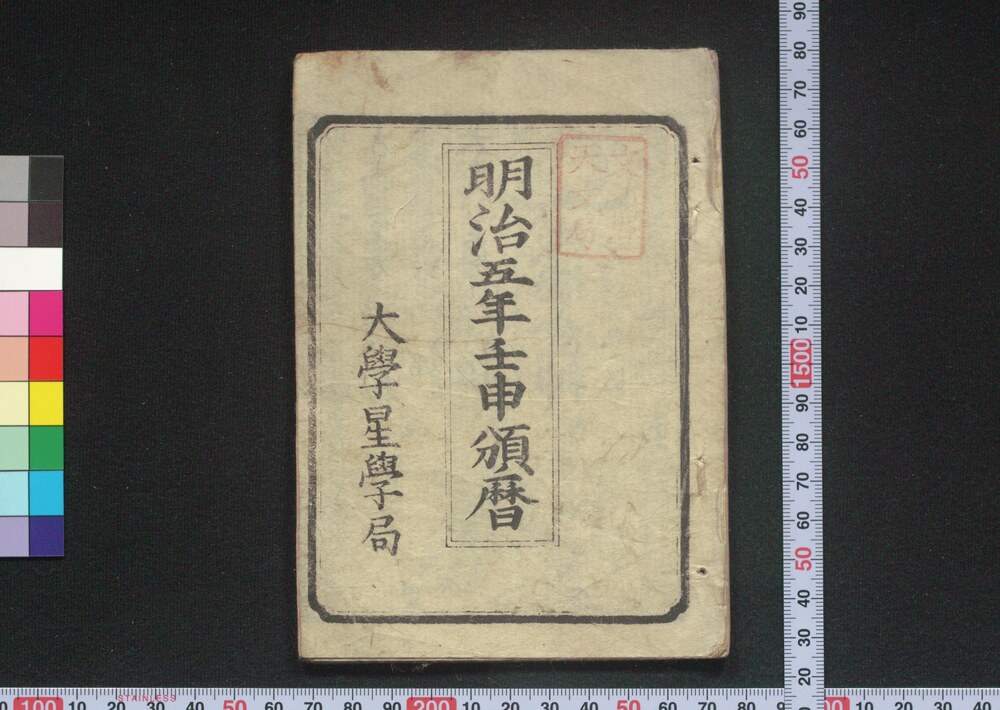 明治五年壬申頒暦
大學星學局
90
80
70
60
50
40
30
20
10
1500
90
80
70
60
50
40
30
20
100 10 20 30 40 50 60 70 80 90 200 10 20 30 40 50 60 70 80 90 00 10 20 30 40
STAINLESS